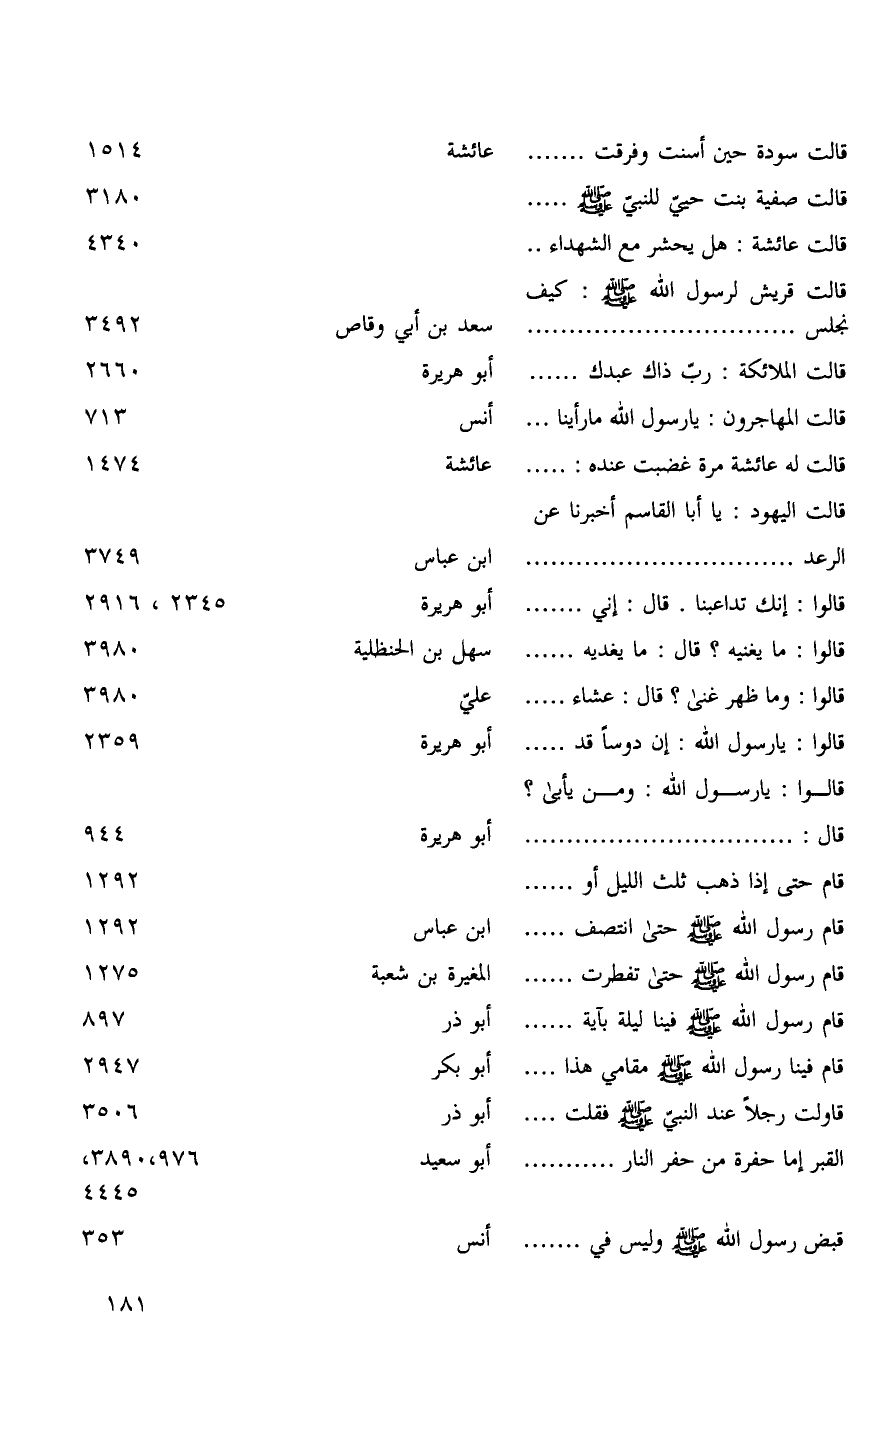 قالت سودة حين أسنت وفرقت ....... عائشة ١٥١٤
قالت صفية بنت حييّ للنبيّ ﷺ ..... ٣١٨٠
قالت عائشة : هل يحشر مع الشهداء .. ٤٣٤٠
قالت قريش لرسول الله ﷺ : كيف
نجلس ................................ سعد بن أبي وقاص ٣٤٩٢
قالت الملائكة : ربّ ذاك عبدك ...... أبو هريرة ٢٦٦٠
قالت المهاجرون : يارسول الله مارأينا ... أنس ٧١٣
قالت له عائشة مرة غضبت عنده : ..... عائشة ١٤٧٤
قالت اليهود : يا أبا القاسم أخبرنا عن
الرعد ................................ ابن عباس ٣٧٤٩
قالوا : إنك تداعبنا . قال : إني ....... أبو هريرة ٢٣٤٥ ، ٢٩١٦
قالوا : ما يغنيه ؟ قال : ما يغديه ...... سهل بن الحنظلية ٣٩٨٠
قالوا : وما ظهر غنىٰ ؟ قال : عشاء ..... عليّ ٣٩٨٠
قالوا : يارسول الله : إن دوساً قد ..... أبو هريرة ٢٣٥٩
قالـوا : يارسـول الله : ومـن يأبىٰ ؟
قال : ................................ أبو هريرة ٩٤٤
قام حتى إذا ذهب ثلث الليل أو ...... ١٢٩٢
قام رسول الله ﷺ حتىٰ انتصف ..... ابن عباس ١٢٩٢
قام رسول الله ﷺ حتىٰ تفطرت ...... المغيرة بن شعبة ١٢٧٥
قام رسول الله ﷺ فينا ليلة بآية ...... أبو ذر ٨٩٧
قام فينا رسول الله ﷺ مقامي هذا .... أبو بكر ٢٩٤٧
قاولت رجلاً عند النبيّ ﷺ فقلت .... أبو ذر ٣٥٠٦
القبر إما حفرة من حفر النار ........... أبو سعيد ٩٧٦،٣٨٩٠،
٤٤٤٥
قبض رسول الله ﷺ وليس في ....... أنس ٣٥٣
١٨١